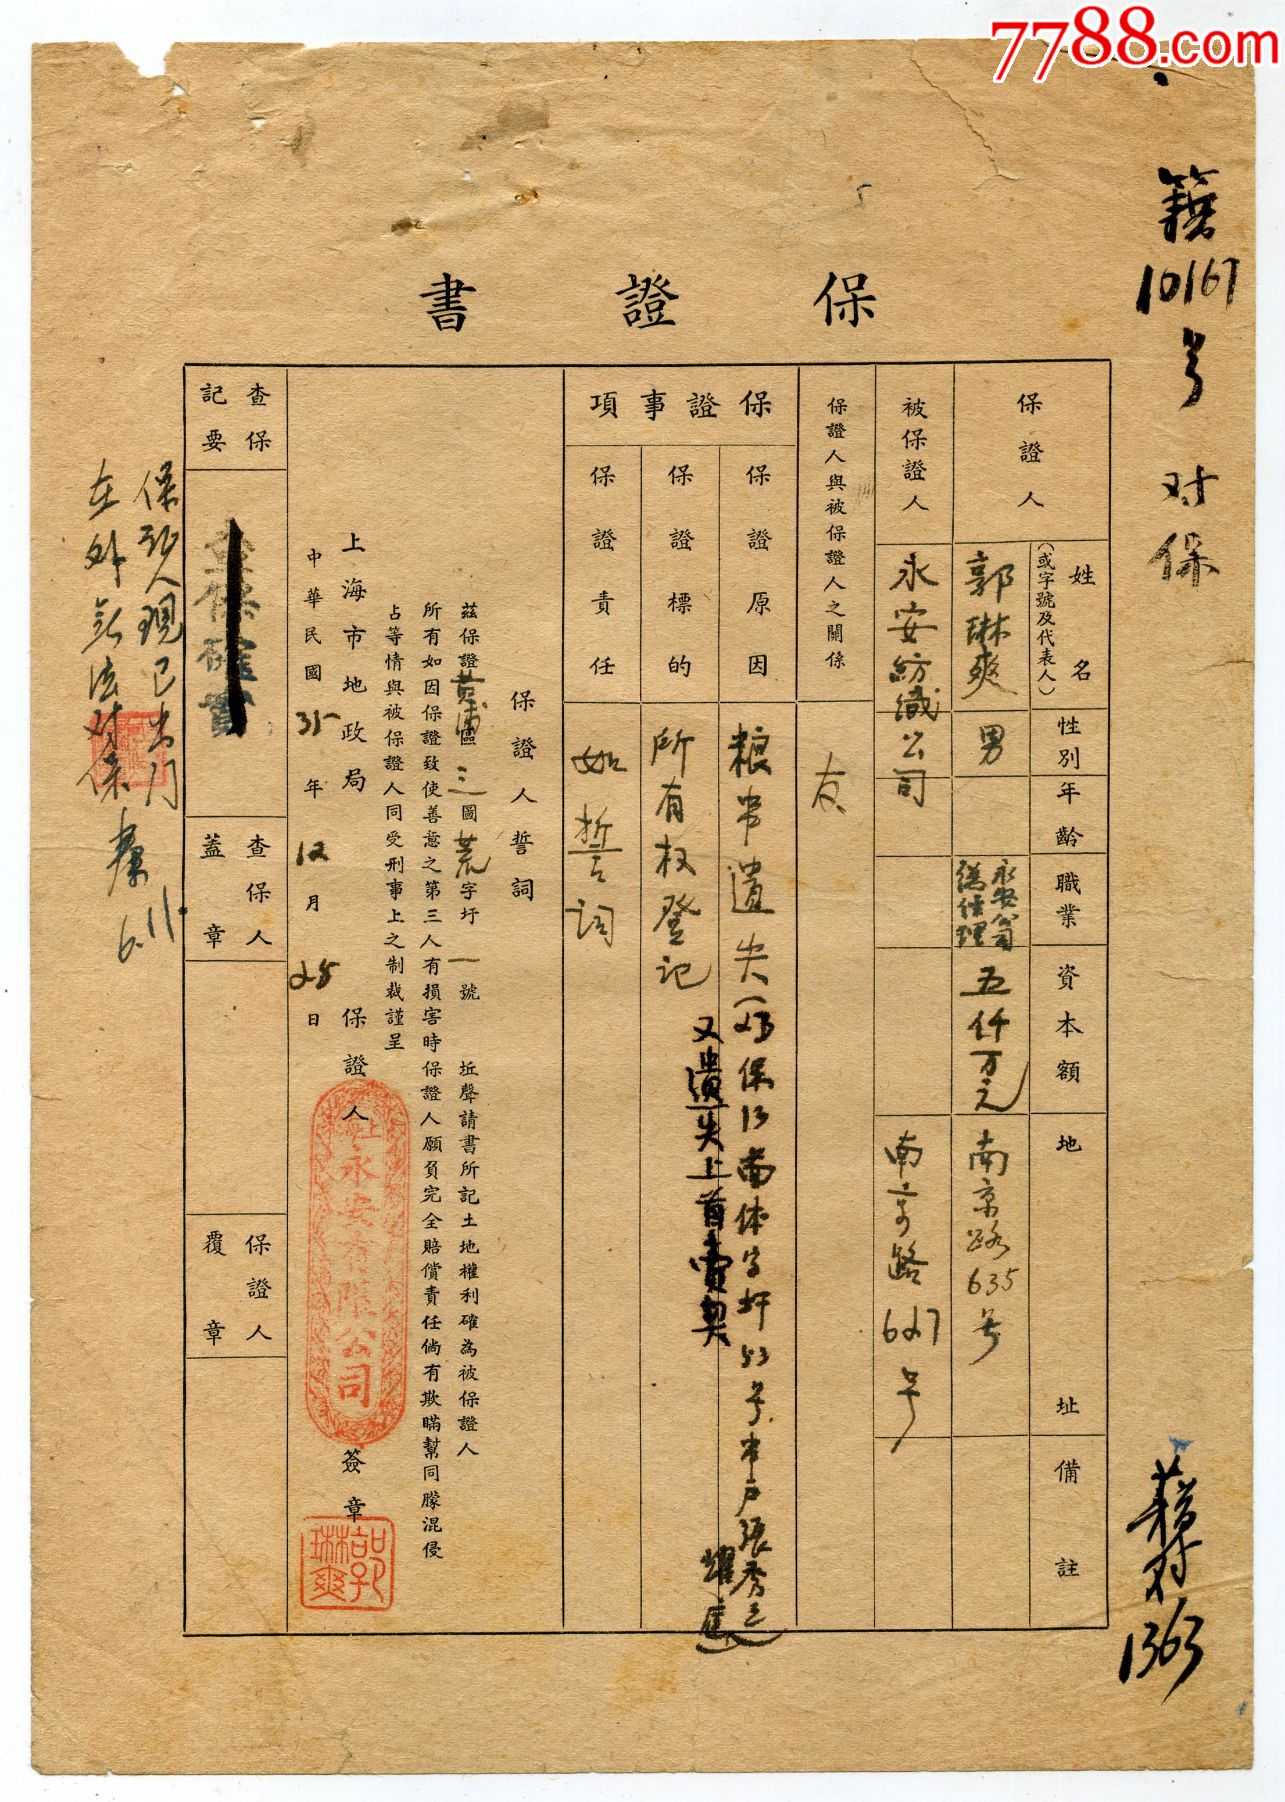 7788.com
籍
10167
号
对保
保證書
保證人
姓名
（或字號及代表人）
性別
年齡
職業
資本額
地址
備註
郭琳爽
男
永安公司
總經理
五仟万元
南京路635号
被保證人
永安紡織公司
南京路627号
保證人與被保證人之關係
友
保證事項
保證原因
粮串遺失
号串戶張秀
又遺失上首賣契
保證標的
所有权登记
保證責任
如誓词
保證人誓詞
茲保證黃浦區三圖荒字圩一號 坵聲請書所記土地權利確為被保證人
所有如因保證致使善意之第三人有損害時保證人願負完全賠償責任倘有欺瞞幫同朦混侵
占等情與被保證人同受刑事上之制裁謹呈
上海市地政局
保證人
上海永安有限公司
簽章
郭琳爽
中華民國35年12月28日
查保記要
查保確實
查保人蓋章
保證人覆章
保証人現已出门
在外無法对保
6.11.
1363